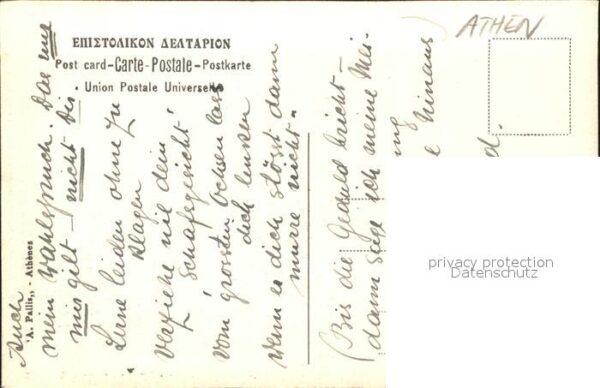 ATHEN
ΕΠΙΣΤΟΛΙΚΟΝ ΔΕΛΤΑΡΙΟΝ
Post card-Carte-Postale-Postkarte
Union Postale Universelle
'A. Pallis,, - Athènes
Auch
mein Wahlspruch. Das
mir gilt - nicht Dir
Lerne leiden ohne zu
klagen
Verziehe nie dein
Schafsgesicht
Vom grössten Ochsen lass
dich
Wenn es dich stösst dann
murre nicht.
(Bis die Geduld bricht -
dann sage ich meine Mei-
ng
hinaus
d.
privacy protection
Datenschutz